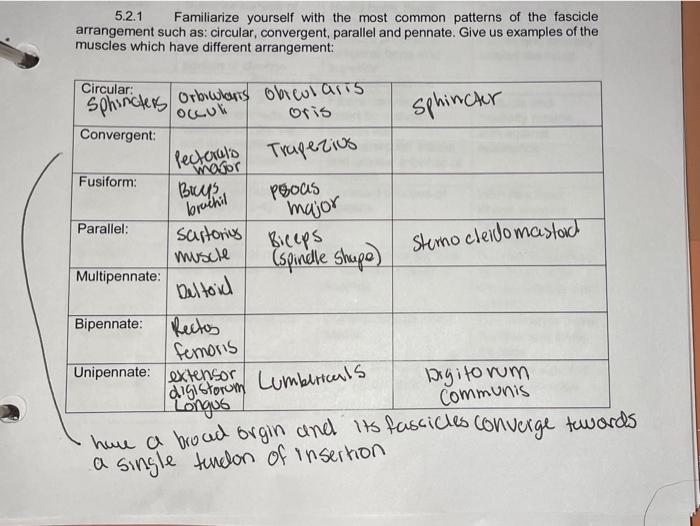 5.2.1 Familiarize yourself with the most common patterns of the fascicle
arrangement such as: circular, convergent, parallel and pennate. Give us examples of the
muscles which have different arrangement:
Circular:
Sphincters
Orbicularis
occuli
obicularis
oris
Sphincter
Convergent:
Pectoralis
major
Trapezius
Fusiform:
Biceps
brachii
psoas
major
Parallel:
Sartorius
muscle
Biceps
(spindle shape)
Sternocleidomastoid
Multipennate:
Deltoid
Bipennate:
Rectus
femoris
Unipennate:
extensor
digistorum
Longus
Lumbricals
Digitorum
Communis
have a broad orgin and its fascicles converge towards
a single tendon of insertion